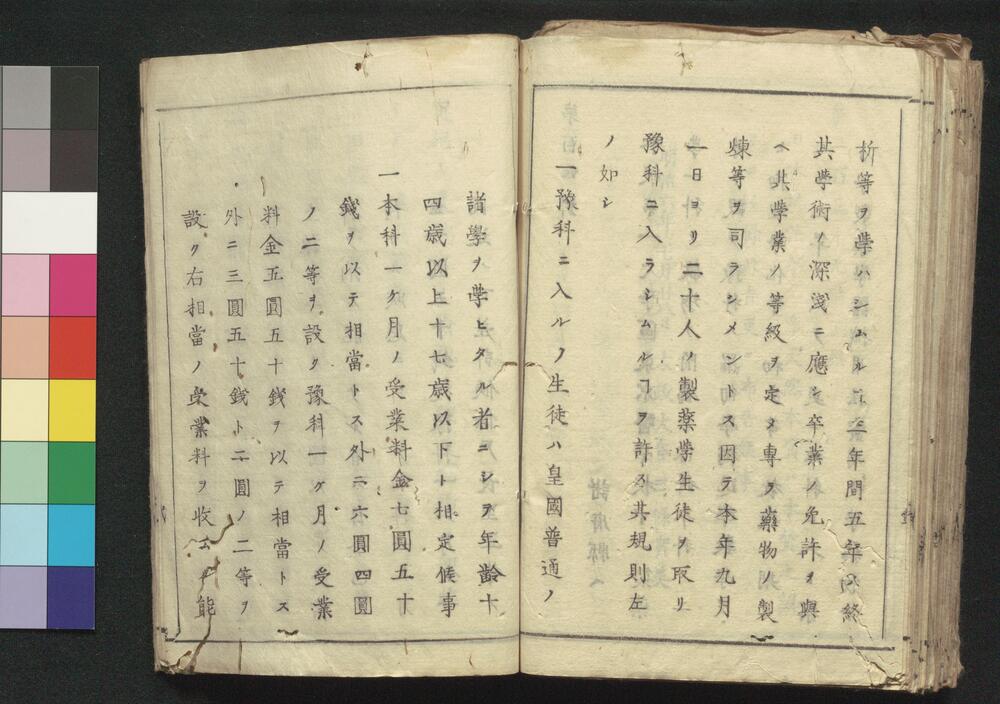 析等ヲ學ハシムル𪜈三年間五年ニ終
其學術ノ深淺ニ應シ卒業ノ免許ヲ與
ヘ其學業ノ等級ヲ定メ專ラ藥物ノ製
煉等ヲ司ラシメントス因テ本年九月
一日ヨリ二十人ノ製藥學生徒ヲ取リ
豫科ニ入ラシムルヿヲ許ス其規則左
ノ如シ
一豫科ニ入ルノ生徒ハ皇國普通ノ
諸學ヲ學ヒタル者ニシテ年齡十
四歳以上十七歳以下ト相定候事
一本科一ケ月ノ受業料金七圓五十
錢ヲ以テ相當トス外ニ六圓四圓
ノ二等ヲ設ク豫科一ケ月ノ受業
料金五圓五十錢ヲ以テ相當トス
外ニ三圓五十錢ト二圓ノ二等ヲ
設ク右相當ノ受業料ヲ收ムヿ能